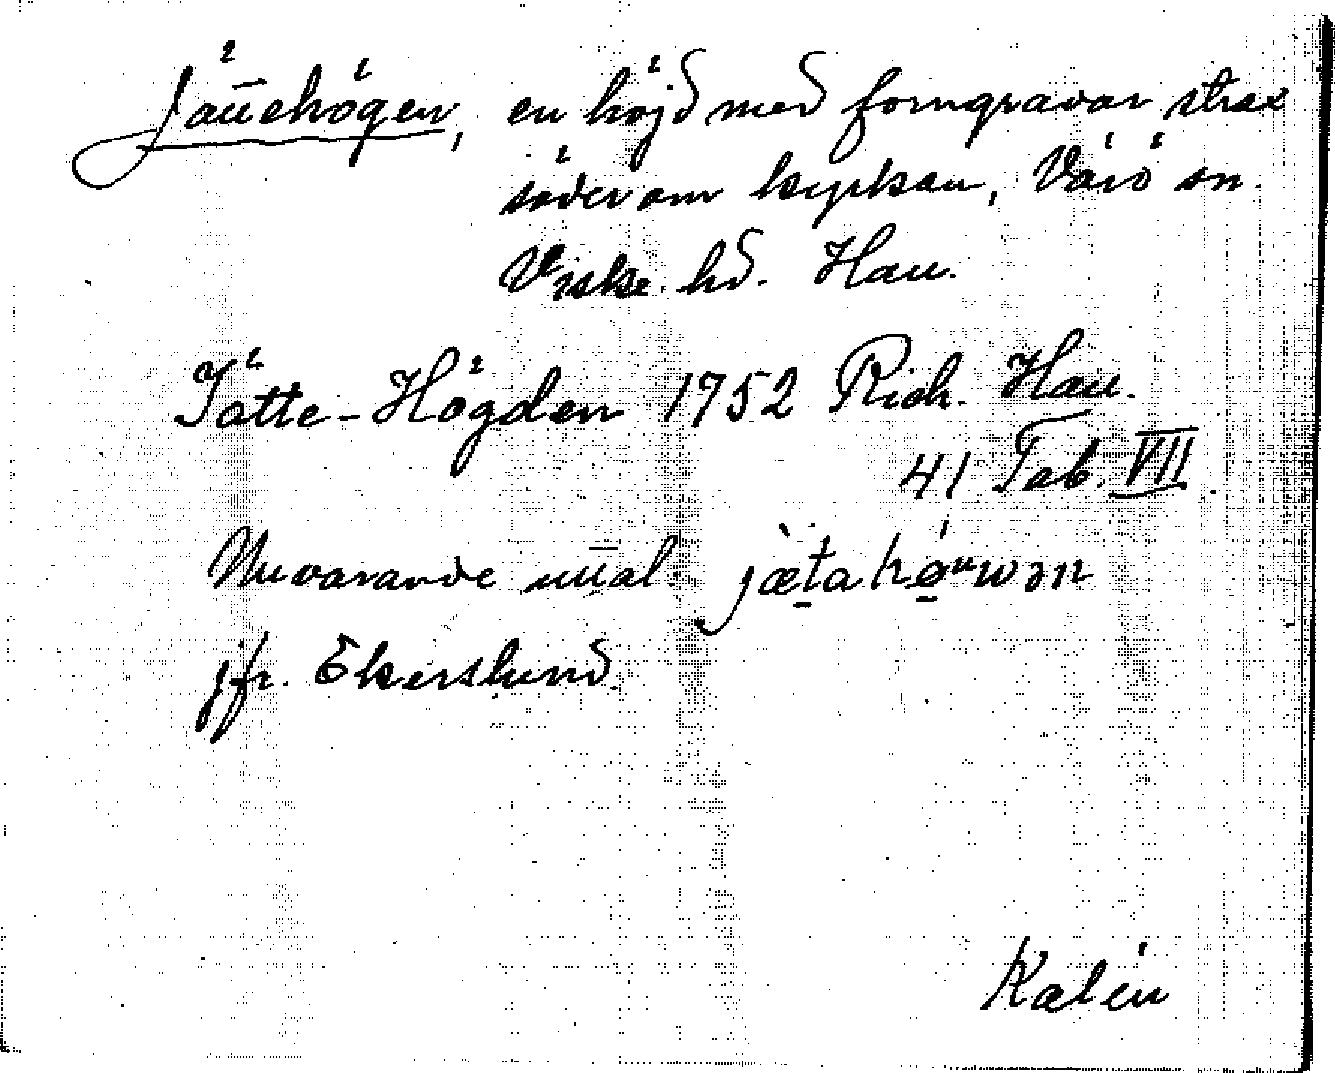 Jättehögen, en höjd med forngravar strax
söder om kyrkan, Värö sn.
Viske hd. Hall.
Jätte-Högden 1752 Rich. Hall.
41 Tab. VII
Nuvarande uttal jætahøuwən
jfr. Ekerslund.
Kalén